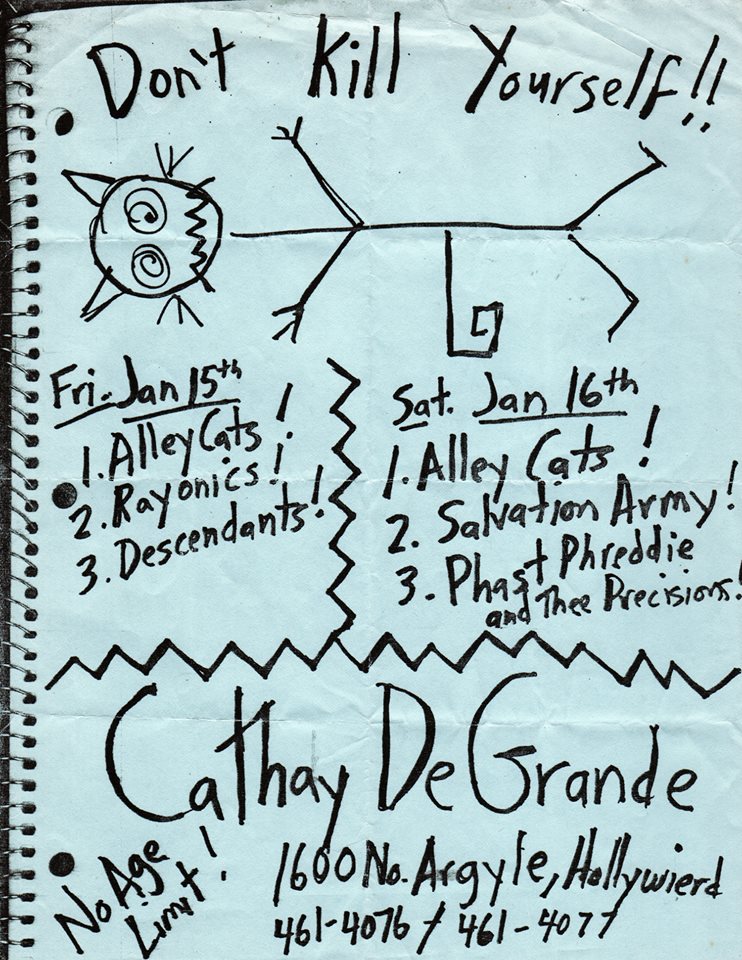 Don't Kill Yourself!!
Fri. Jan 15th
1. Alley Cats!
2. Rayonics!
3. Descendants!
Sat. Jan 16th
1. Alley Cats!
2. Salvation Army!
3. Phast Phreddie
and Thee Precisions!
Cathay De Grande
No Age
Limit!
1600 No. Argyle, Hollywierd
461-4076 / 461-4077